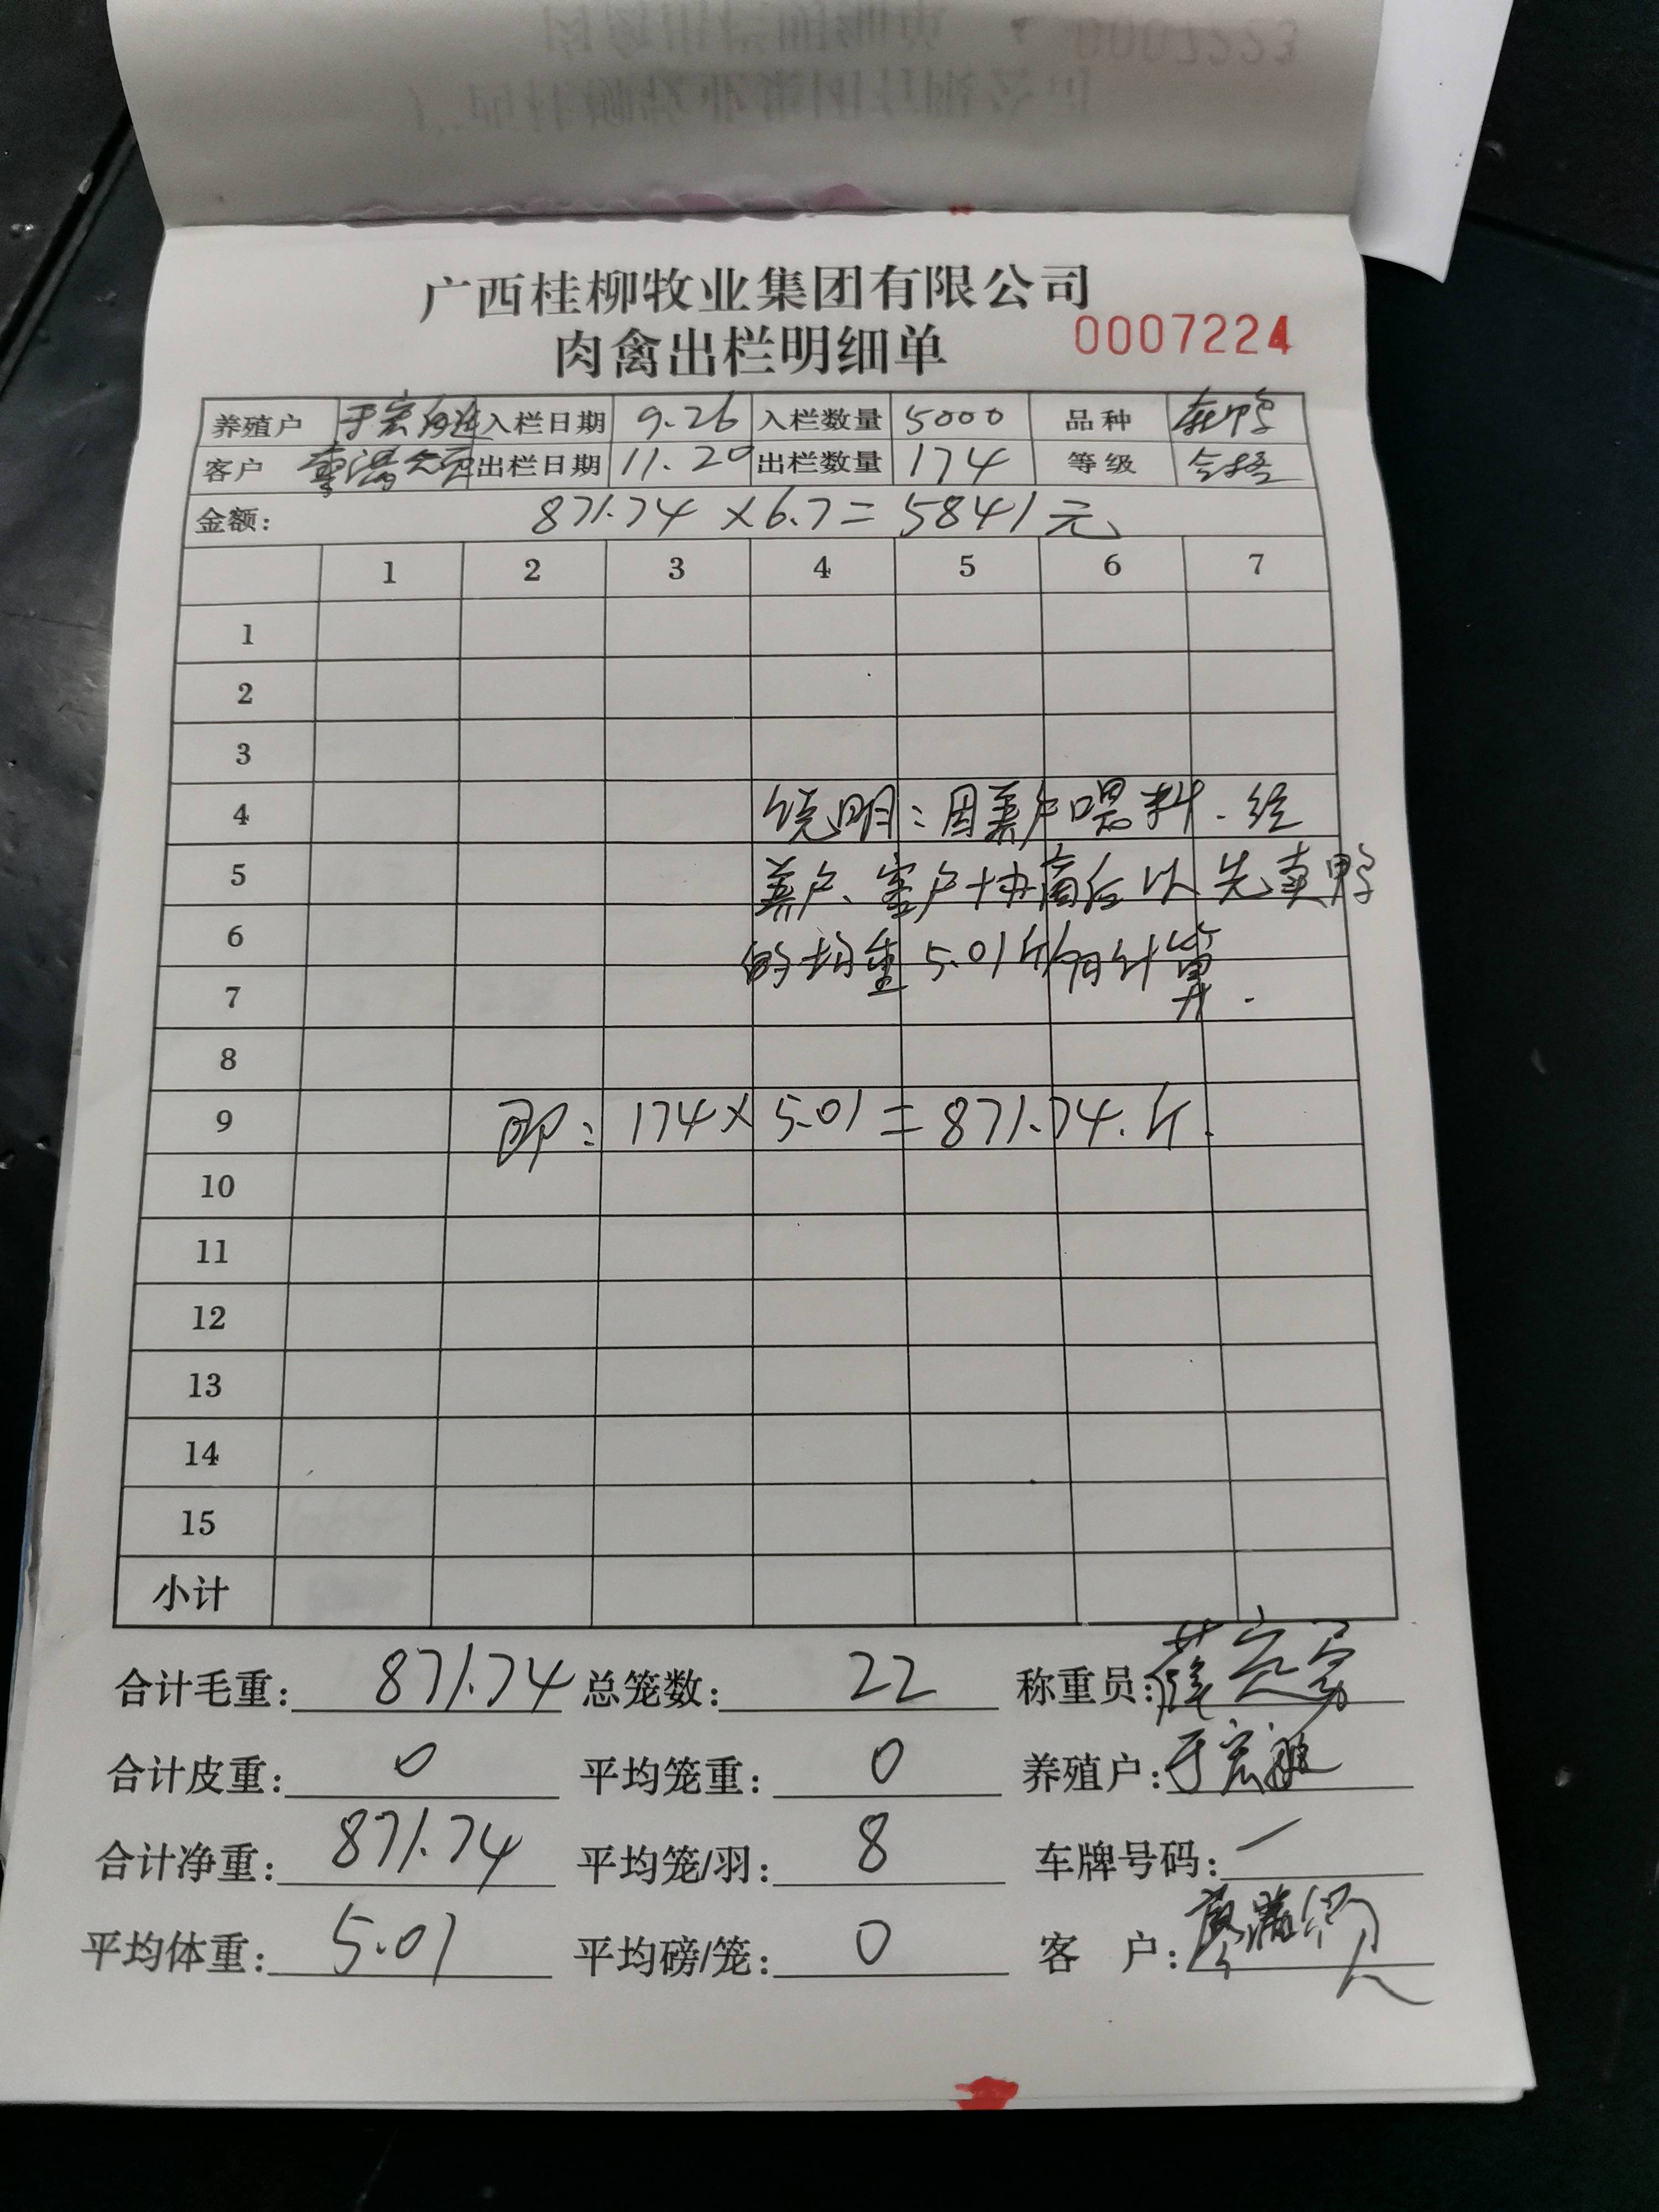 广西桂柳牧业集团有限公司
肉禽出栏明细单 0007224
养殖户 于宏 入栏日期 9.26 入栏数量 5000 品种
客户 出栏日期 11.20 出栏数量 174 等级 合格
金额: 871.74×6.7=5841元
1 2 3 4 5 6 7
1
2
3
4 说明:因养户喂料.经
5 养户、客户协商后以先卖鸭
6 的均重5.01斤/羽计算.
7
8
9 即:174×5.01=871.74.斤.
10
11
12
13
14
15
小计
合计毛重: 871.74 总笼数: 22 称重员:
合计皮重: 0 平均笼重: 0 养殖户: 于宏
合计净重: 871.74 平均笼/羽: 8 车牌号码: 一
平均体重: 5.01 平均磅/笼: 0 客 户: